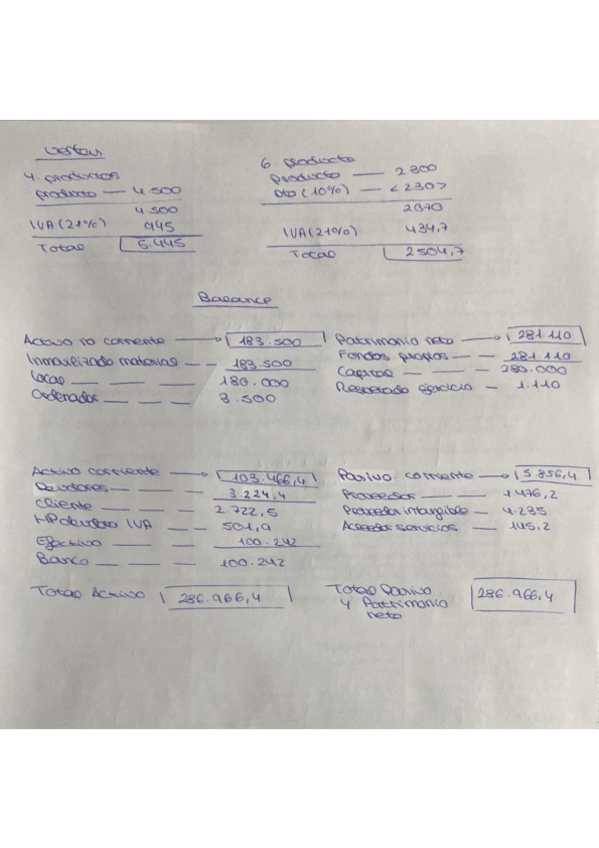 Ventas
4. productos
producto — 4.500
4.500
IVA (21%) 945
Total 5.445
6. producto
producto — 2300
Dto (10%) — <230>
2070
IVA (21%) 434,7
Total 2504,7
Balance
Activo no corriente → 183.500
Inmovilizado material — — 183.500
Local — — — 180.000
Ordenador — — — 3.500
Patrimonio neto → 281.110
Fondos propios — — 281.110
Capital — — — 280.000
Resultado ejercicio — 1.110
Activo corriente → 103.466,4
Deudores — — — 3.224,4
Cliente — — — 2.722,5
HP deudora IVA — — 501,9
Efectivo — — 100.242
Banco — — — 100.242
Pasivo corriente → 5.856,4
Proveedor — — — 1.476,2
Proveedor intangible — 4.235
Acreedor servicios — 145,2
Total Activo 286.966,4
Total Pasivo
y Patrimonio
neto
286.966,4